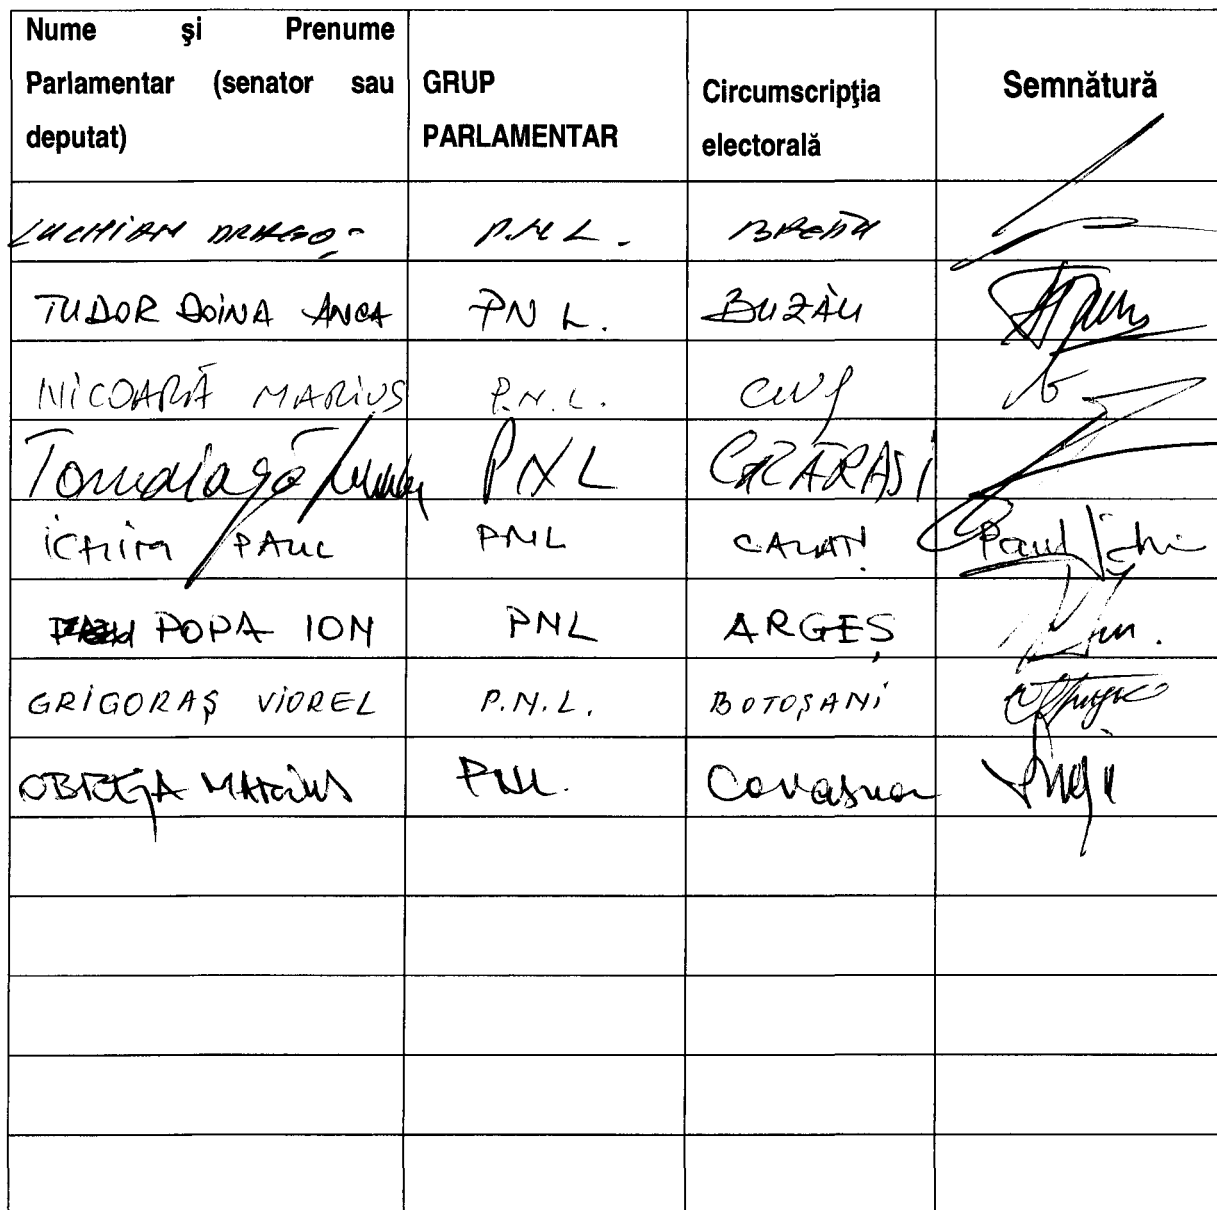 Nume și Prenume Parlamentar (senator sau deputat) GRUP PARLAMENTAR Circumscripţia electorală Semnătură
LUCHIAN DRAGOȘ P.N.L.
TUDOR DOINA ANCA PNL. BUZĂU
NICOARĂ MARIUS P.N.L. CLUJ
PNL CĂLĂRAȘI
ICHIM PAUL PNL GALAȚI Paul Ichi
POPA ION PNL ARGEȘ
GRIGORAȘ VIOREL P.N.L. BOTOȘANI
OBREJA MARIUS PNL. Covasna